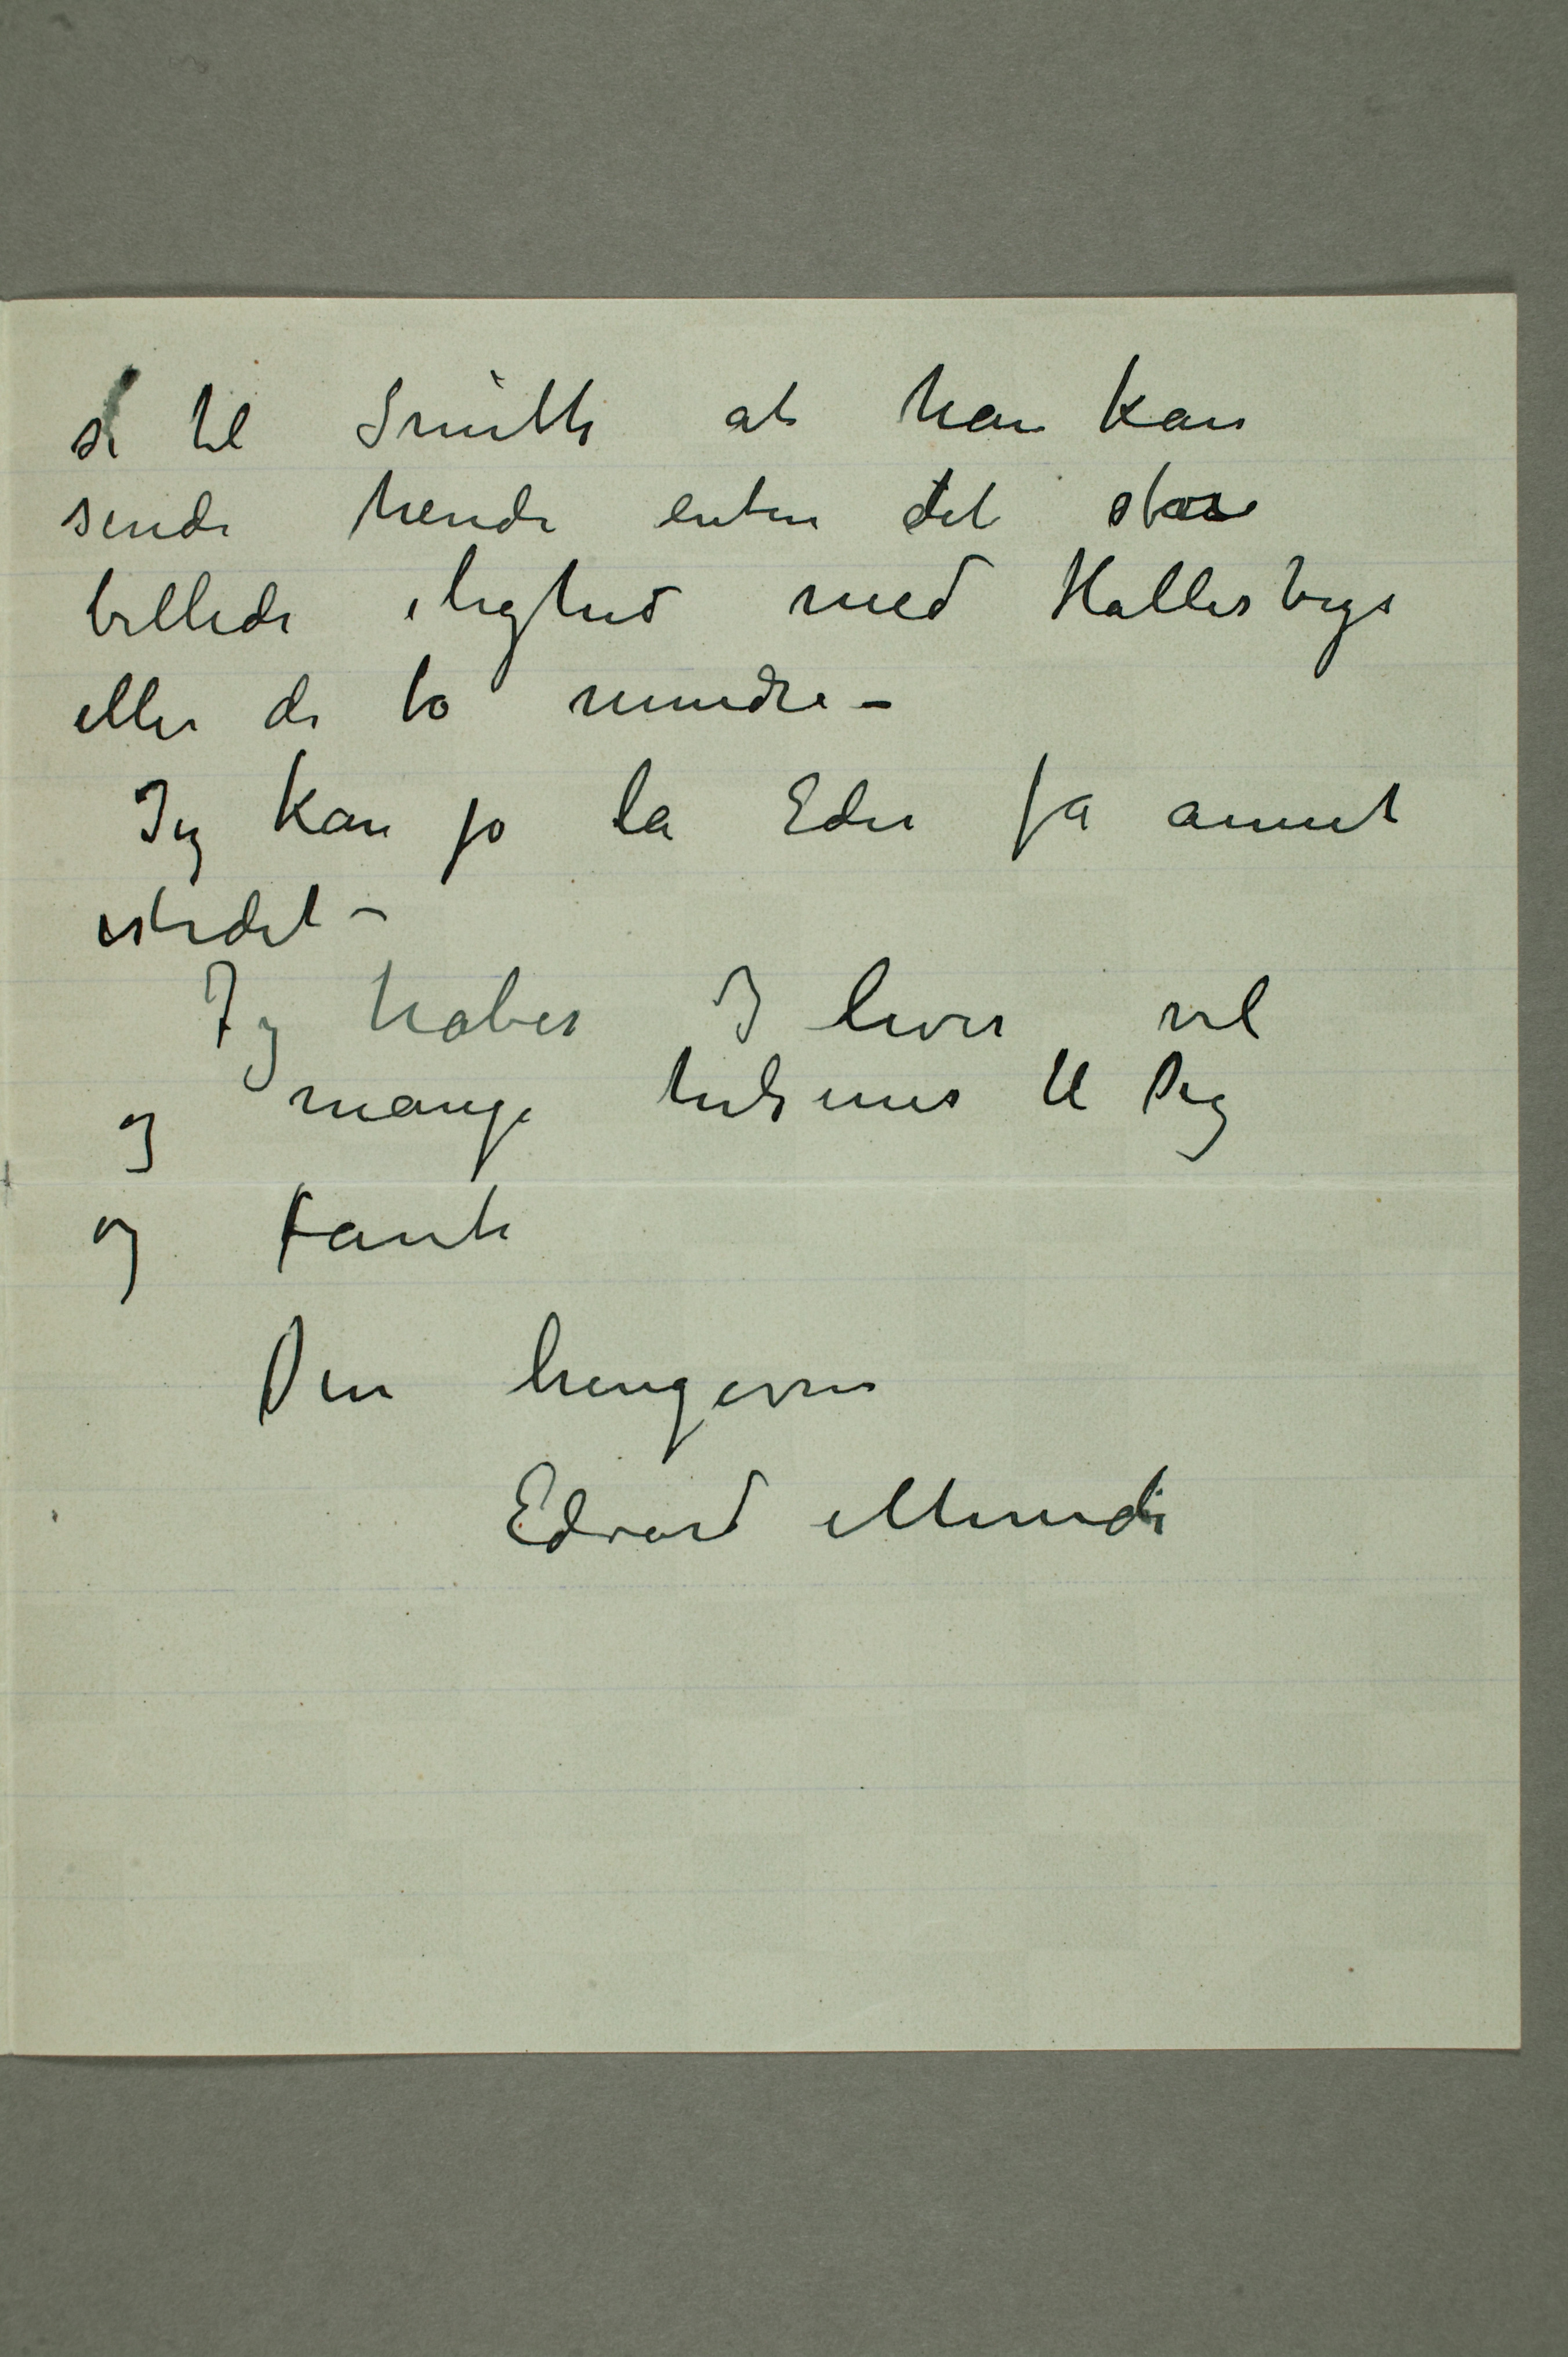 si til Smith at han kan
sende hende enten det store
billede i lighed med Hallesbys
eller de to mindre –
Jeg kan jo la Eder få annet
istedet –
Jeg håber I lever vel
og mange hilsener til Dig
og Tante
Din hengivne
Edvard Munch